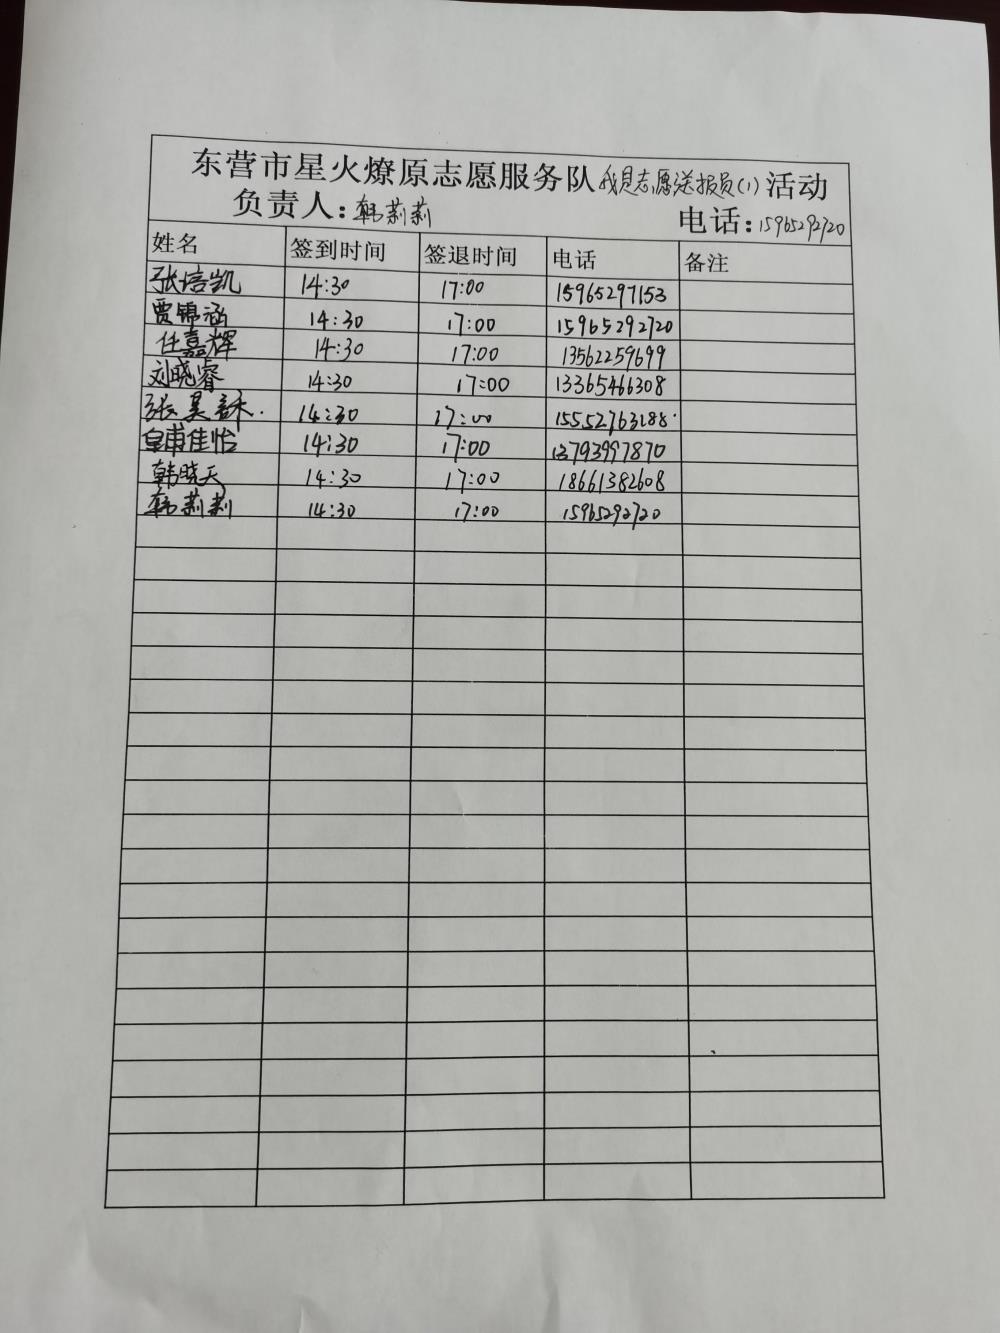 东营市星火燎原志愿服务队我是志愿送报员(1)活动
负责人:韩莉莉 电话:15965292720
姓名 签到时间 签退时间 电话 备注
张培凯 14:30 17:00 15965297153
贾锦涵 14:30 17:00 15965292720
任嘉辉 14:30 17:00 13562259699
刘晓睿 14:30 17:00 13365466308
张昊 14:30 17:00 15552763188
皇甫佳怡 14:30 17:00 13793997870
韩晓天 14:30 17:00 18661382608
韩莉莉 14:30 17:00 15965292720